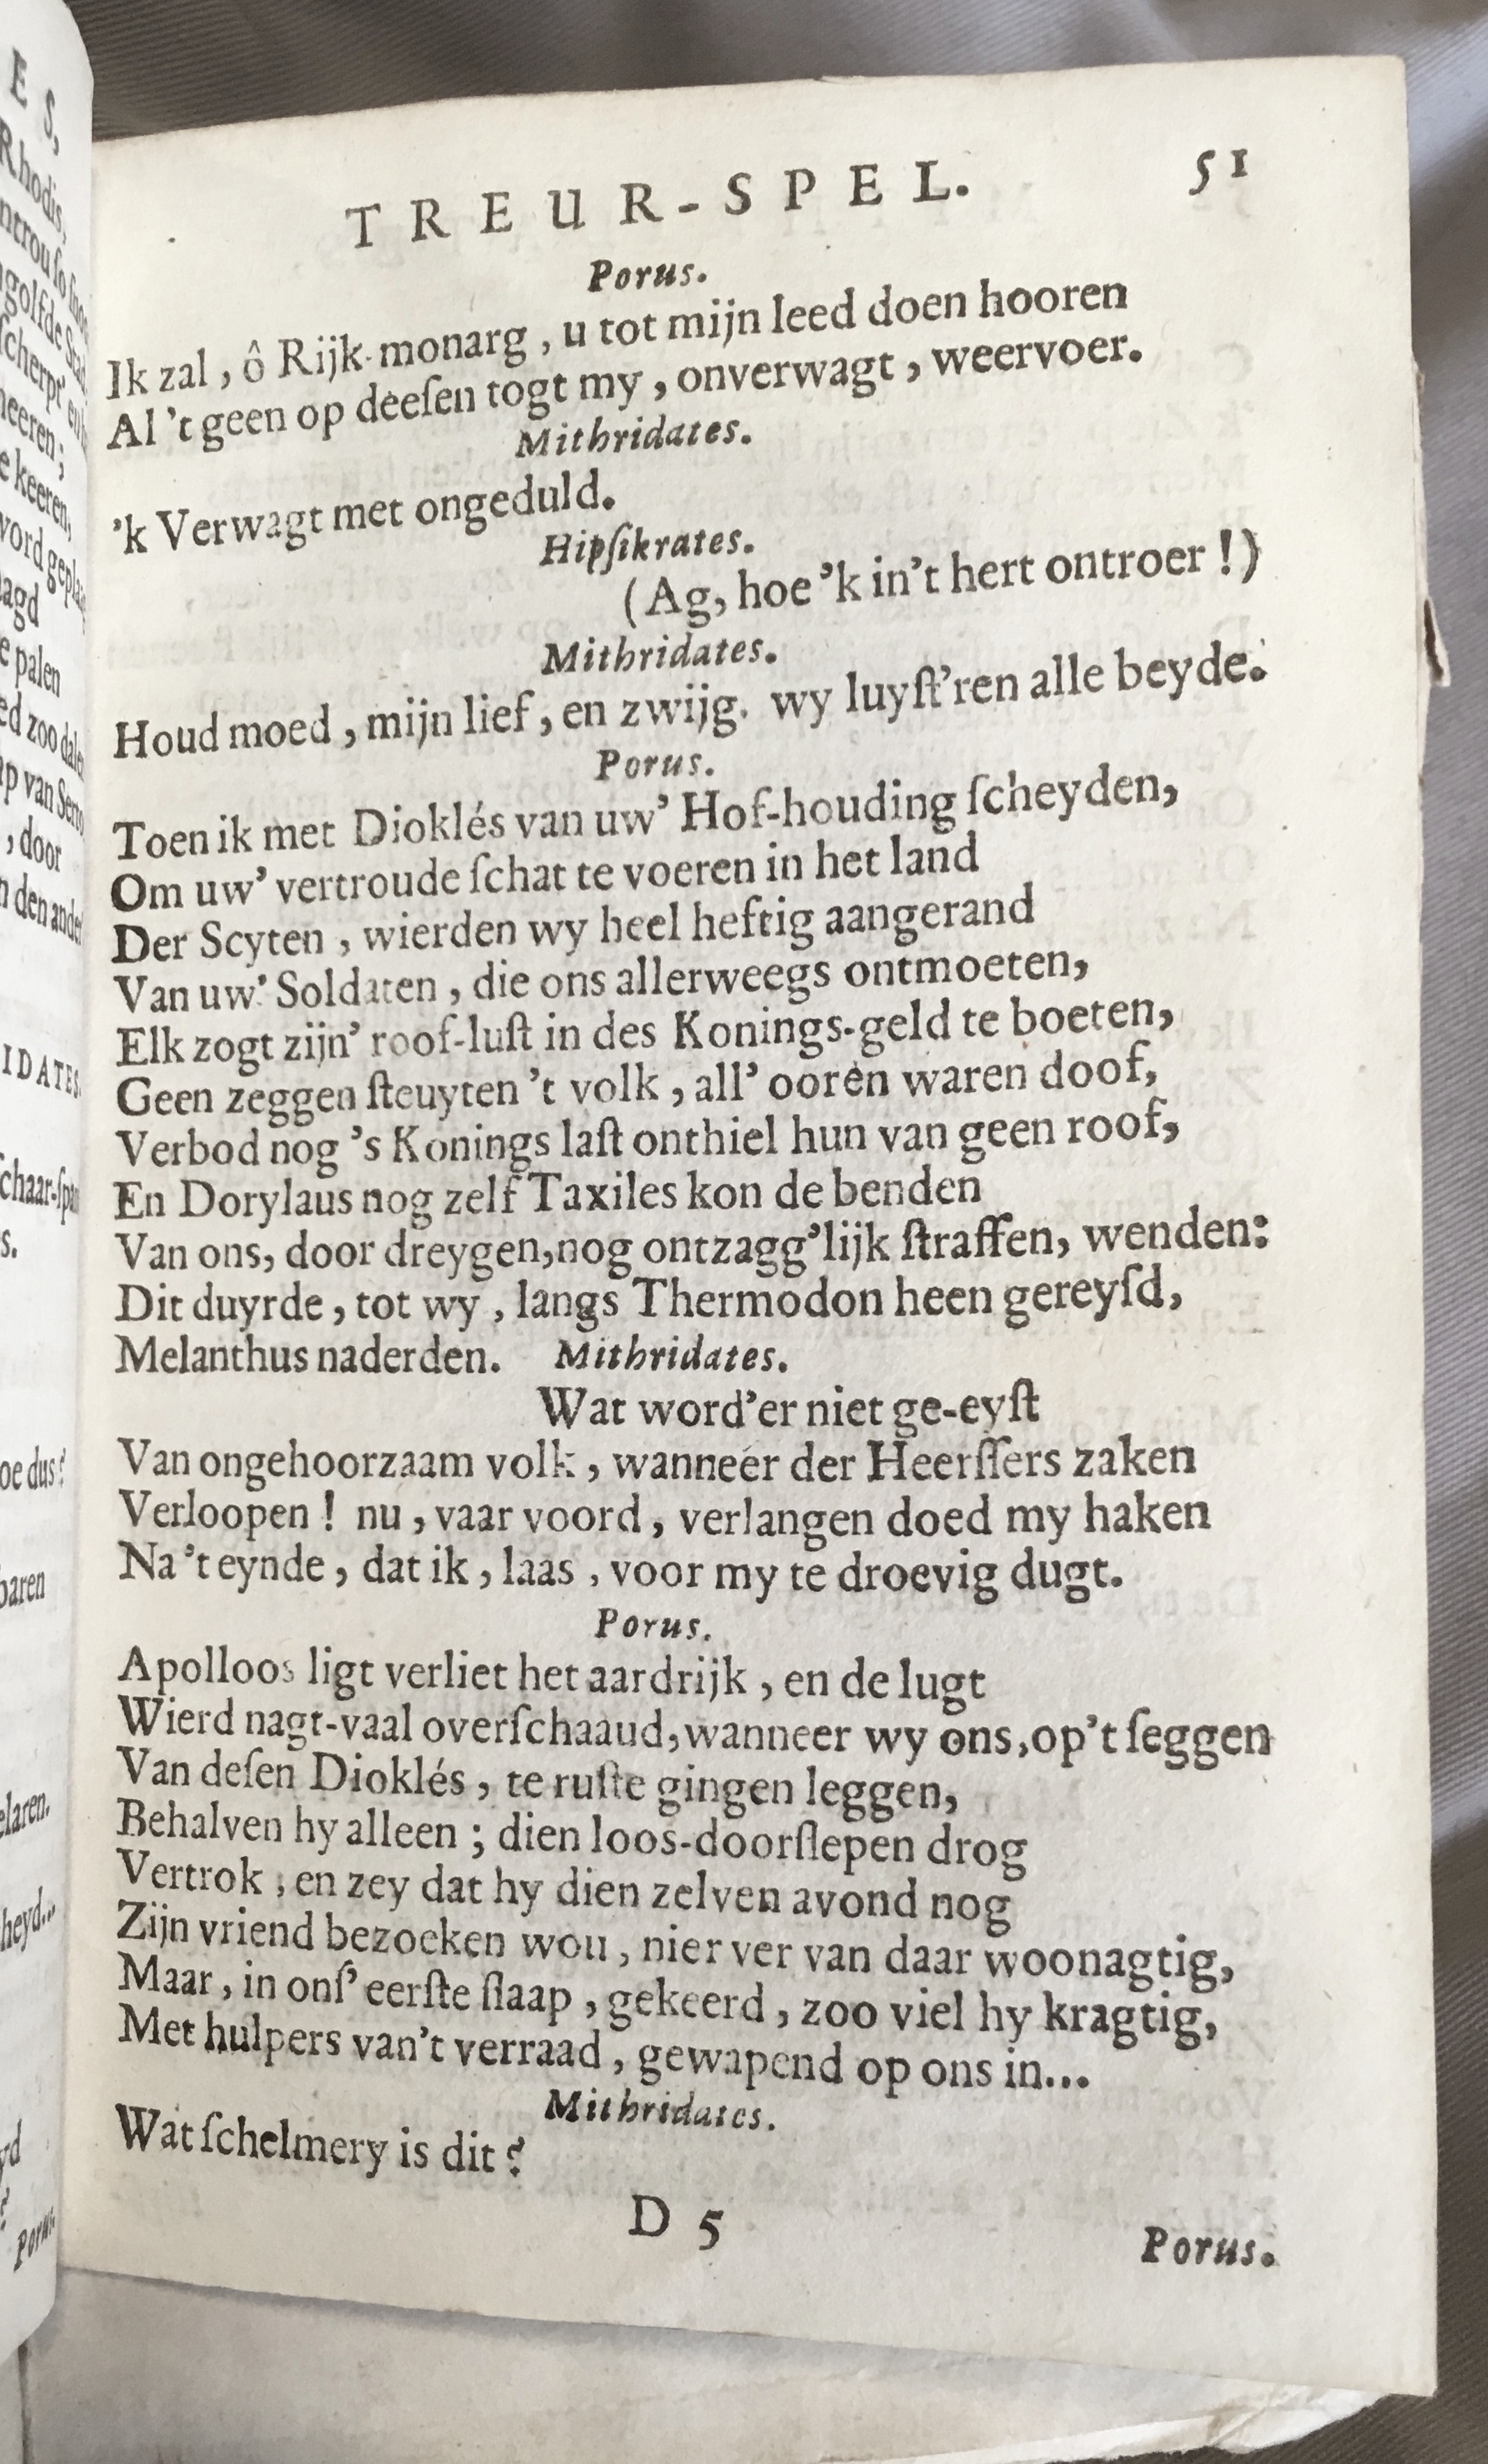 E S,
Rhodis,
neeren;
e keeren,
agd
e palen
, door
IDATES.
s.
baren
elaren.
heyd...
Porus.
TREUR-SPEL. 51
Porus.
Ik zal, ô Rijk-monarg, u tot mijn leed doen hooren
Al 't geen op deeſen togt my, onverwagt, weervoer.
Mithridates.
'k Verwagt met ongeduld.
Hipſikrates.
(Ag, hoe 'k in't hert ontroer!)
Mithridates.
Houd moed, mijn lief, en zwijg. wy luyſt'ren alle beyde.
Porus.
Toen ik met Dioklés van uw' Hof-houding ſcheyden,
Om uw' vertroude ſchat te voeren in het land
Der Scyten, wierden wy heel heftig aangerand
Van uw' Soldaten, die ons allerweegs ontmoeten,
Elk zogt zijn' roof-luſt in des Konings-geld te boeten,
Geen zeggen ſteuyten 't volk, all' ooren waren doof,
Verbod nog 's Konings laſt onthiel hun van geen roof,
En Dorylaus nog zelf Taxiles kon de benden
Van ons, door dreygen, nog ontzagg'lijk ſtraffen, wenden:
Dit duyrde, tot wy, langs Thermodon heen gereyſd,
Melanthus naderden. Mithridates.
Wat word'er niet ge-eyſt
Van ongehoorzaam volk, wanneer der Heerſſers zaken
Verloopen! nu, vaar voord, verlangen doed my haken
Na 't eynde, dat ik, laas, voor my te droevig dugt.
Porus.
Apolloos ligt verliet het aardrijk, en de lugt
Wierd nagt-vaal overſchaaud, wanneer wy ons, op't ſeggen
Van deſen Dioklés, te ruſte gingen leggen,
Behalven hy alleen; dien loos-doorſlepen drog
Vertrok, en zey dat hy dien zelven avond nog
Zijn vriend bezoeken wou, niet ver van daar woonagtig,
Maar, in onſ' eerſte ſlaap, gekeerd, zoo viel hy kragtig,
Met hulpers van't verraad, gewapend op ons in...
Mithridates.
Wat ſchelmery is dit?
D 5
Porus.